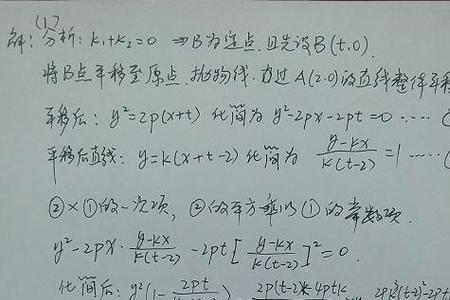 解: (1) 分析: k₁+k₂=0 ⇒ B为定点, 且先设B(t,0).
将B点平移至原点, 抛物线, 过A(2,0)的直线整体平移
平移后: y²=2p(x+t) 化简为 y²-2px-2pt=0 ······
平移后直线: y=k(x+t-2) 化简为 \frac{y-kx}{k(t-2)}=1 ······
②×①的一次项, ②的平方乘以①的常数项.
y²-2px·\frac{y-kx}{k(t-2)}-2pt[\frac{y-kx}{k(t-2)}]²=0.
化简后: y²(1-